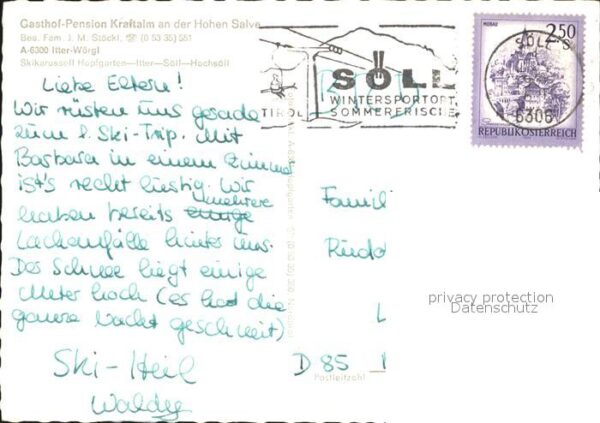 Gasthof-Pension Kraftalm an der Hohen Salve
Bes. Fam. J. M. Stöckl, ☎ (0 53 35) 551
A-6300 Itter-Wörgl
Skikarussell Hopfgarten—Itter—Söll—Hochsöll
Liebe Eltern!
Wir rüsten uns gerade
zum 1. Ski-Trip. Mit
Barbara in einem Zimmer
ist's recht lustig. Wir
haben bereits einige mehrere
Lachanfälle hinter uns.
Der Schnee liegt einige
Meter hoch (es hat die
ganze Nacht geschneit)
Ski-Heil
TIROL
SÖLL
WINTERSPORTORT
SOMMERFRISCHE
MURAU
2.50
S
SÖLL
6306
REPUBLIK ÖSTERREICH
Famili
Rudo
L
D 85 1
Postleitzahl
privacy protection
Datenschutz